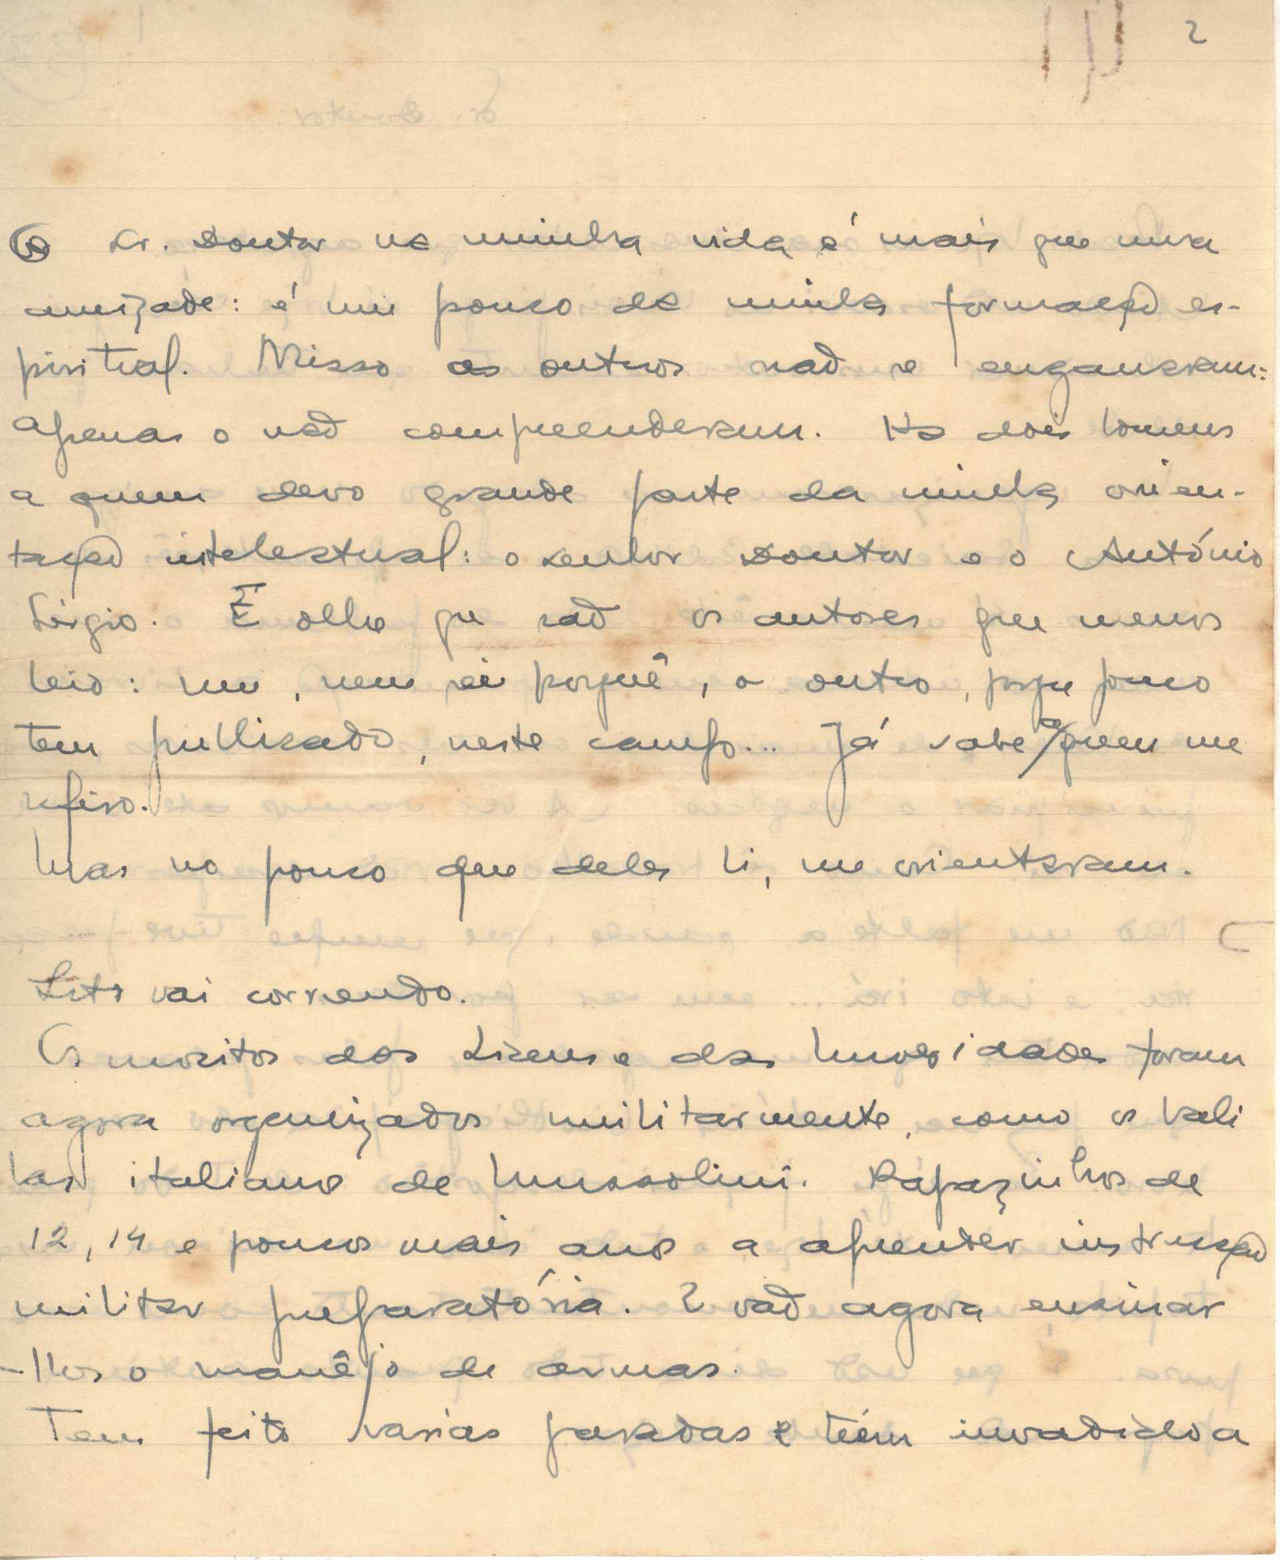 2
O Sr. Doutor na minha vida é mais que uma
amizade: é um pouco da minha formação es-
piritual. Nisso os outros não se enganaram:
apenas o não compreenderam. Há dois homens
a quem devo grande parte da minha orien-
tação intelectual: o senhor Doutor e o António
Sérgio. E olhe que são os autores que menos
leio: um, nem sei porquê, o outro, porque pouco
tem publicado, neste campo... Já sabe a quem me
refiro.
Mas no pouco que deles li, me orientaram.
Isto vai correndo.
Os mocitos dos Liceus e das Universidades foram
agora organizados militarmente, como os bali
las italianos de Mussolini. Rapazinhos de
12, 14 e poucos mais anos a aprender instrução
militar preparatória. E vão agora ensinar
-lhes o manêjo de armas.
Tem feito várias paradas e têem invadido a